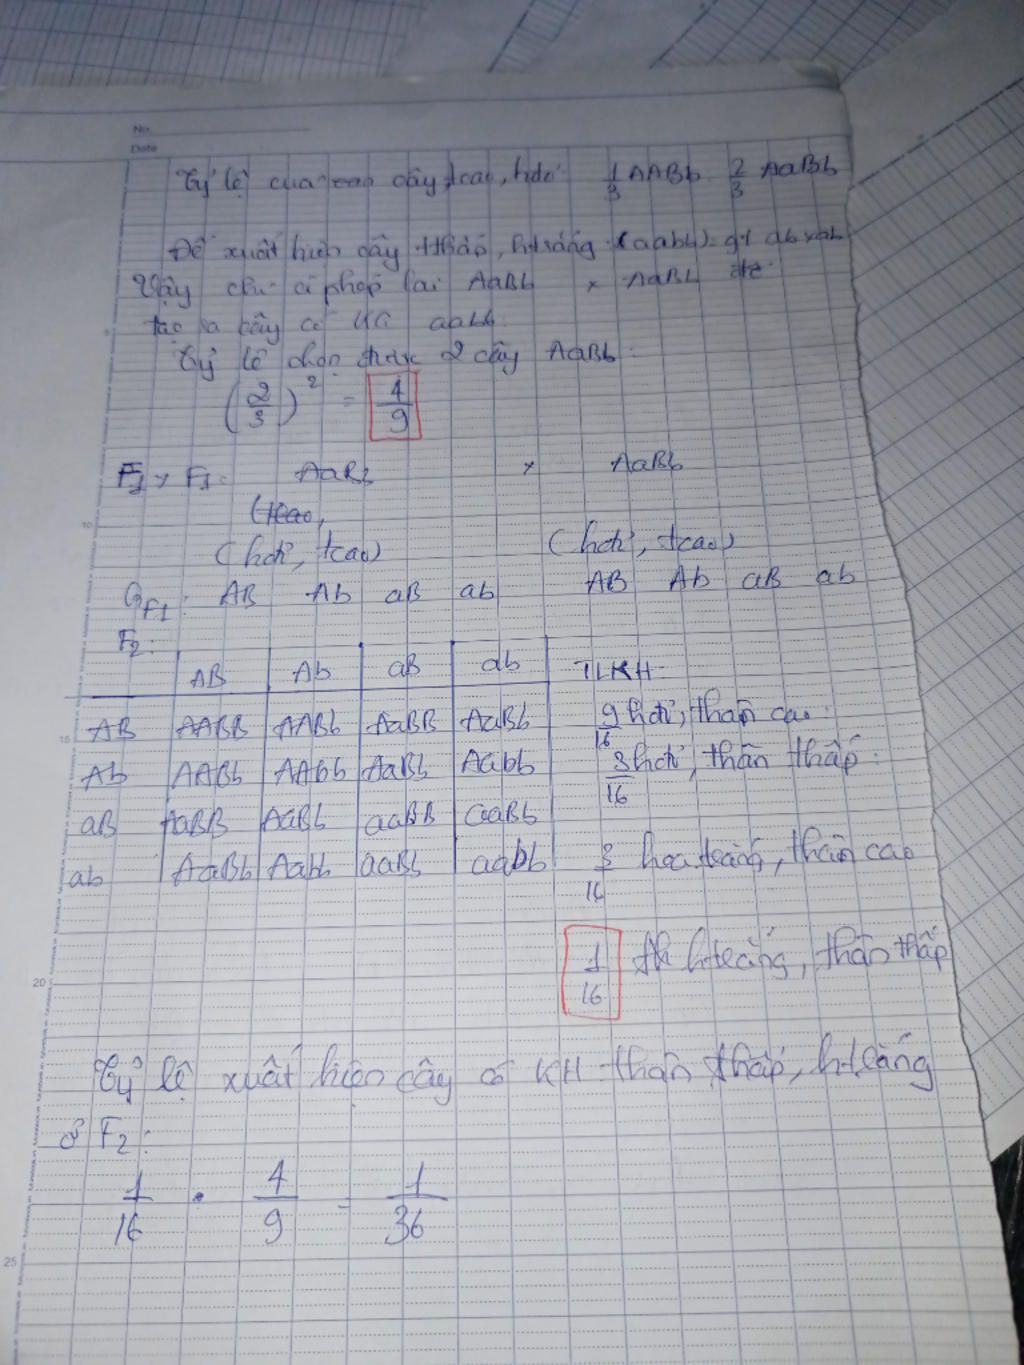 No.
Date
Tỷ lệ của cây tcao, hđỏ 1/3 AABb 2/3 AaBb
Để xuất hiện cây tthấp, htrắng (aabb) = gt ab x ab
Vậy chỉ có phép lai AaBb x AaBb để
tạo ra cây có KG aabb.
Tỷ lệ chọn được 2 cây AaBb:
(2/3)² = 4/9
F1 x F1: AaBb x AaBb
(tcao,
(hđỏ, tcao) (hđỏ, tcao)
GF1: AB Ab aB ab AB Ab aB ab
F2:
AB Ab aB ab TLKH
AB AABB AABb AaBB AaBb 9/16 hđỏ, thân cao.
Ab AABb AAbb AaBb Aabb 3/16 hđỏ, thân thấp.
aB AaBB AaBb aaBB aaBb
ab AaBb Aabb aaBb aabb 3/16 hoa trắng, thân cao
1/16 htrắng, thân thấp
Tỷ lệ xuất hiện cây có KH thân thấp, htrắng
ở F2:
1/16 . 4/9 = 1/36
5
10
15
20
25